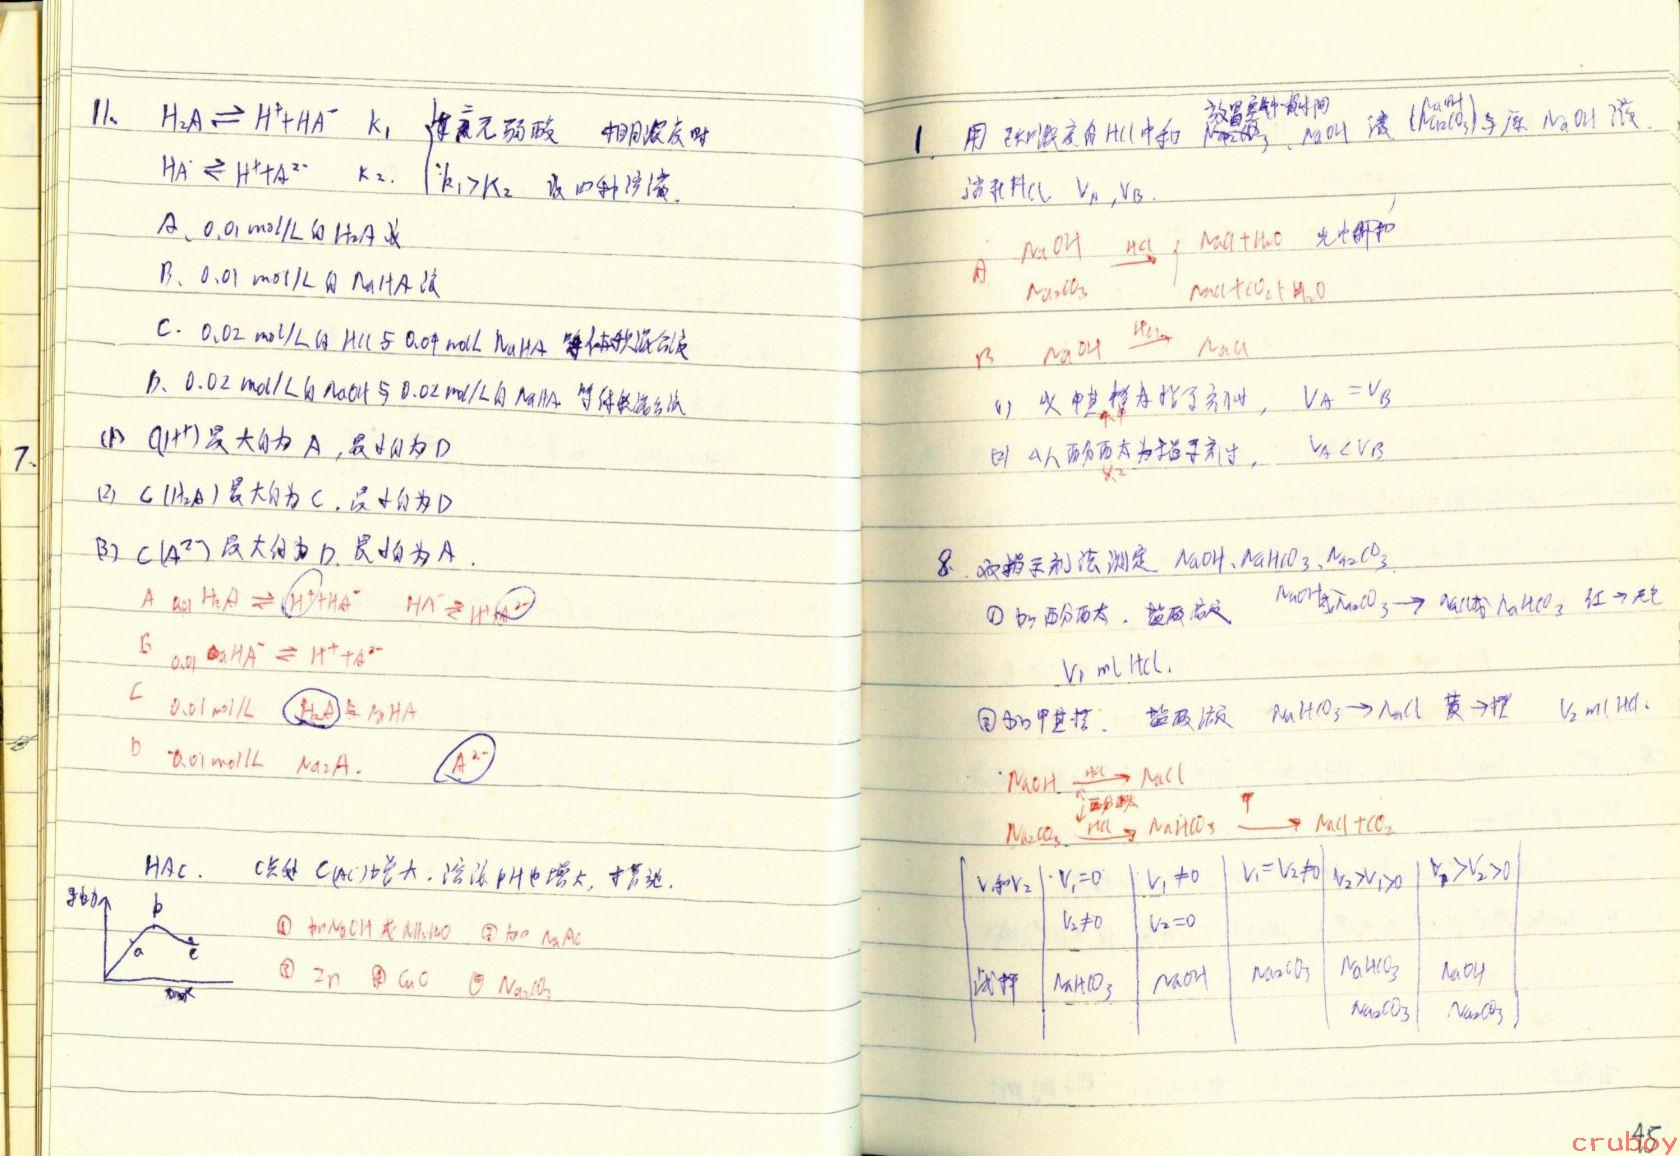 11、 H₂A ⇌ H⁺+HA⁻ K₁ 某二元弱酸 相同浓度时
HA⁻ ⇌ H⁺+A²⁻ K₂. K₁>K₂ 溶液.
A、0.01 mol/L 的 H₂A 液
B、0.01 mol/L 的 NaHA 液
C. 0.02 mol/L 的 HCl 与 0.04 mol/L NaHA 等体积混合液
D、0.02 mol/L 的 NaOH 与 0.02 mol/L 的 NaHA 等体积混合液
(1) C(H⁺) 最大的为 A , 最小的为 D
(2) C(H₂A) 最大的为 C . 最小的为 D
(3) C(A²⁻) 最大的为 D. 最小的为 A .
A 0.01 H₂A ⇌ H⁺+HA⁻ HA⁻ ⇌ H⁺+A²⁻
B 0.01 HA⁻ ⇌ H⁺+A²⁻
C 0.01 mol/L H₂A 与 NaHA
D 0.01 mol/L Na₂A. A²⁻
7.
HAc. C点处 C(Ac⁻)增大. 溶液 pH也增大,
b
a
c
① 加NaOH 或 NH₃·H₂O ② 加 NaAc
③ Zn ④ CuO ⑤ Na₂CO₃
放置空气一段时间
1. 用 已知浓度的HCl中和 NaOH 液 (NaOH Na₂CO₃) 与原 NaOH 液.
消耗HCl V_A , V_B.
A NaOH HCl→ NaCl+H₂O 先中和
Na₂CO₃ NaCl+CO₂+H₂O
B NaOH HCl→ NaCl
(1) 以 甲基橙为指示剂时, V_A = V_B
(2) 以 酚酞为指示剂时, V_A < V_B
8. 双指示剂法测定 NaOH、NaHCO₃、Na₂CO₃
① 加酚酞. 盐酸滴定 NaOH或Na₂CO₃ → NaCl或NaHCO₃ 红→无色
V₁ ml HCl.
② 加甲基橙. 盐酸滴定 NaHCO₃ → NaCl 黄→橙 V₂ ml HCl.
NaOH HCl→ NaCl
酚酞
Na₂CO₃ HCl→ NaHCO₃ → NaCl+CO₂
V₁和V₂ V₁=0 V₁≠0 V₁=V₂≠0 V₂>V₁>0 V₁>V₂>0
V₂≠0 V₂=0
试样 NaHCO₃ NaOH Na₂CO₃ NaHCO₃ NaOH
Na₂CO₃ Na₂CO₃
45
cruboy